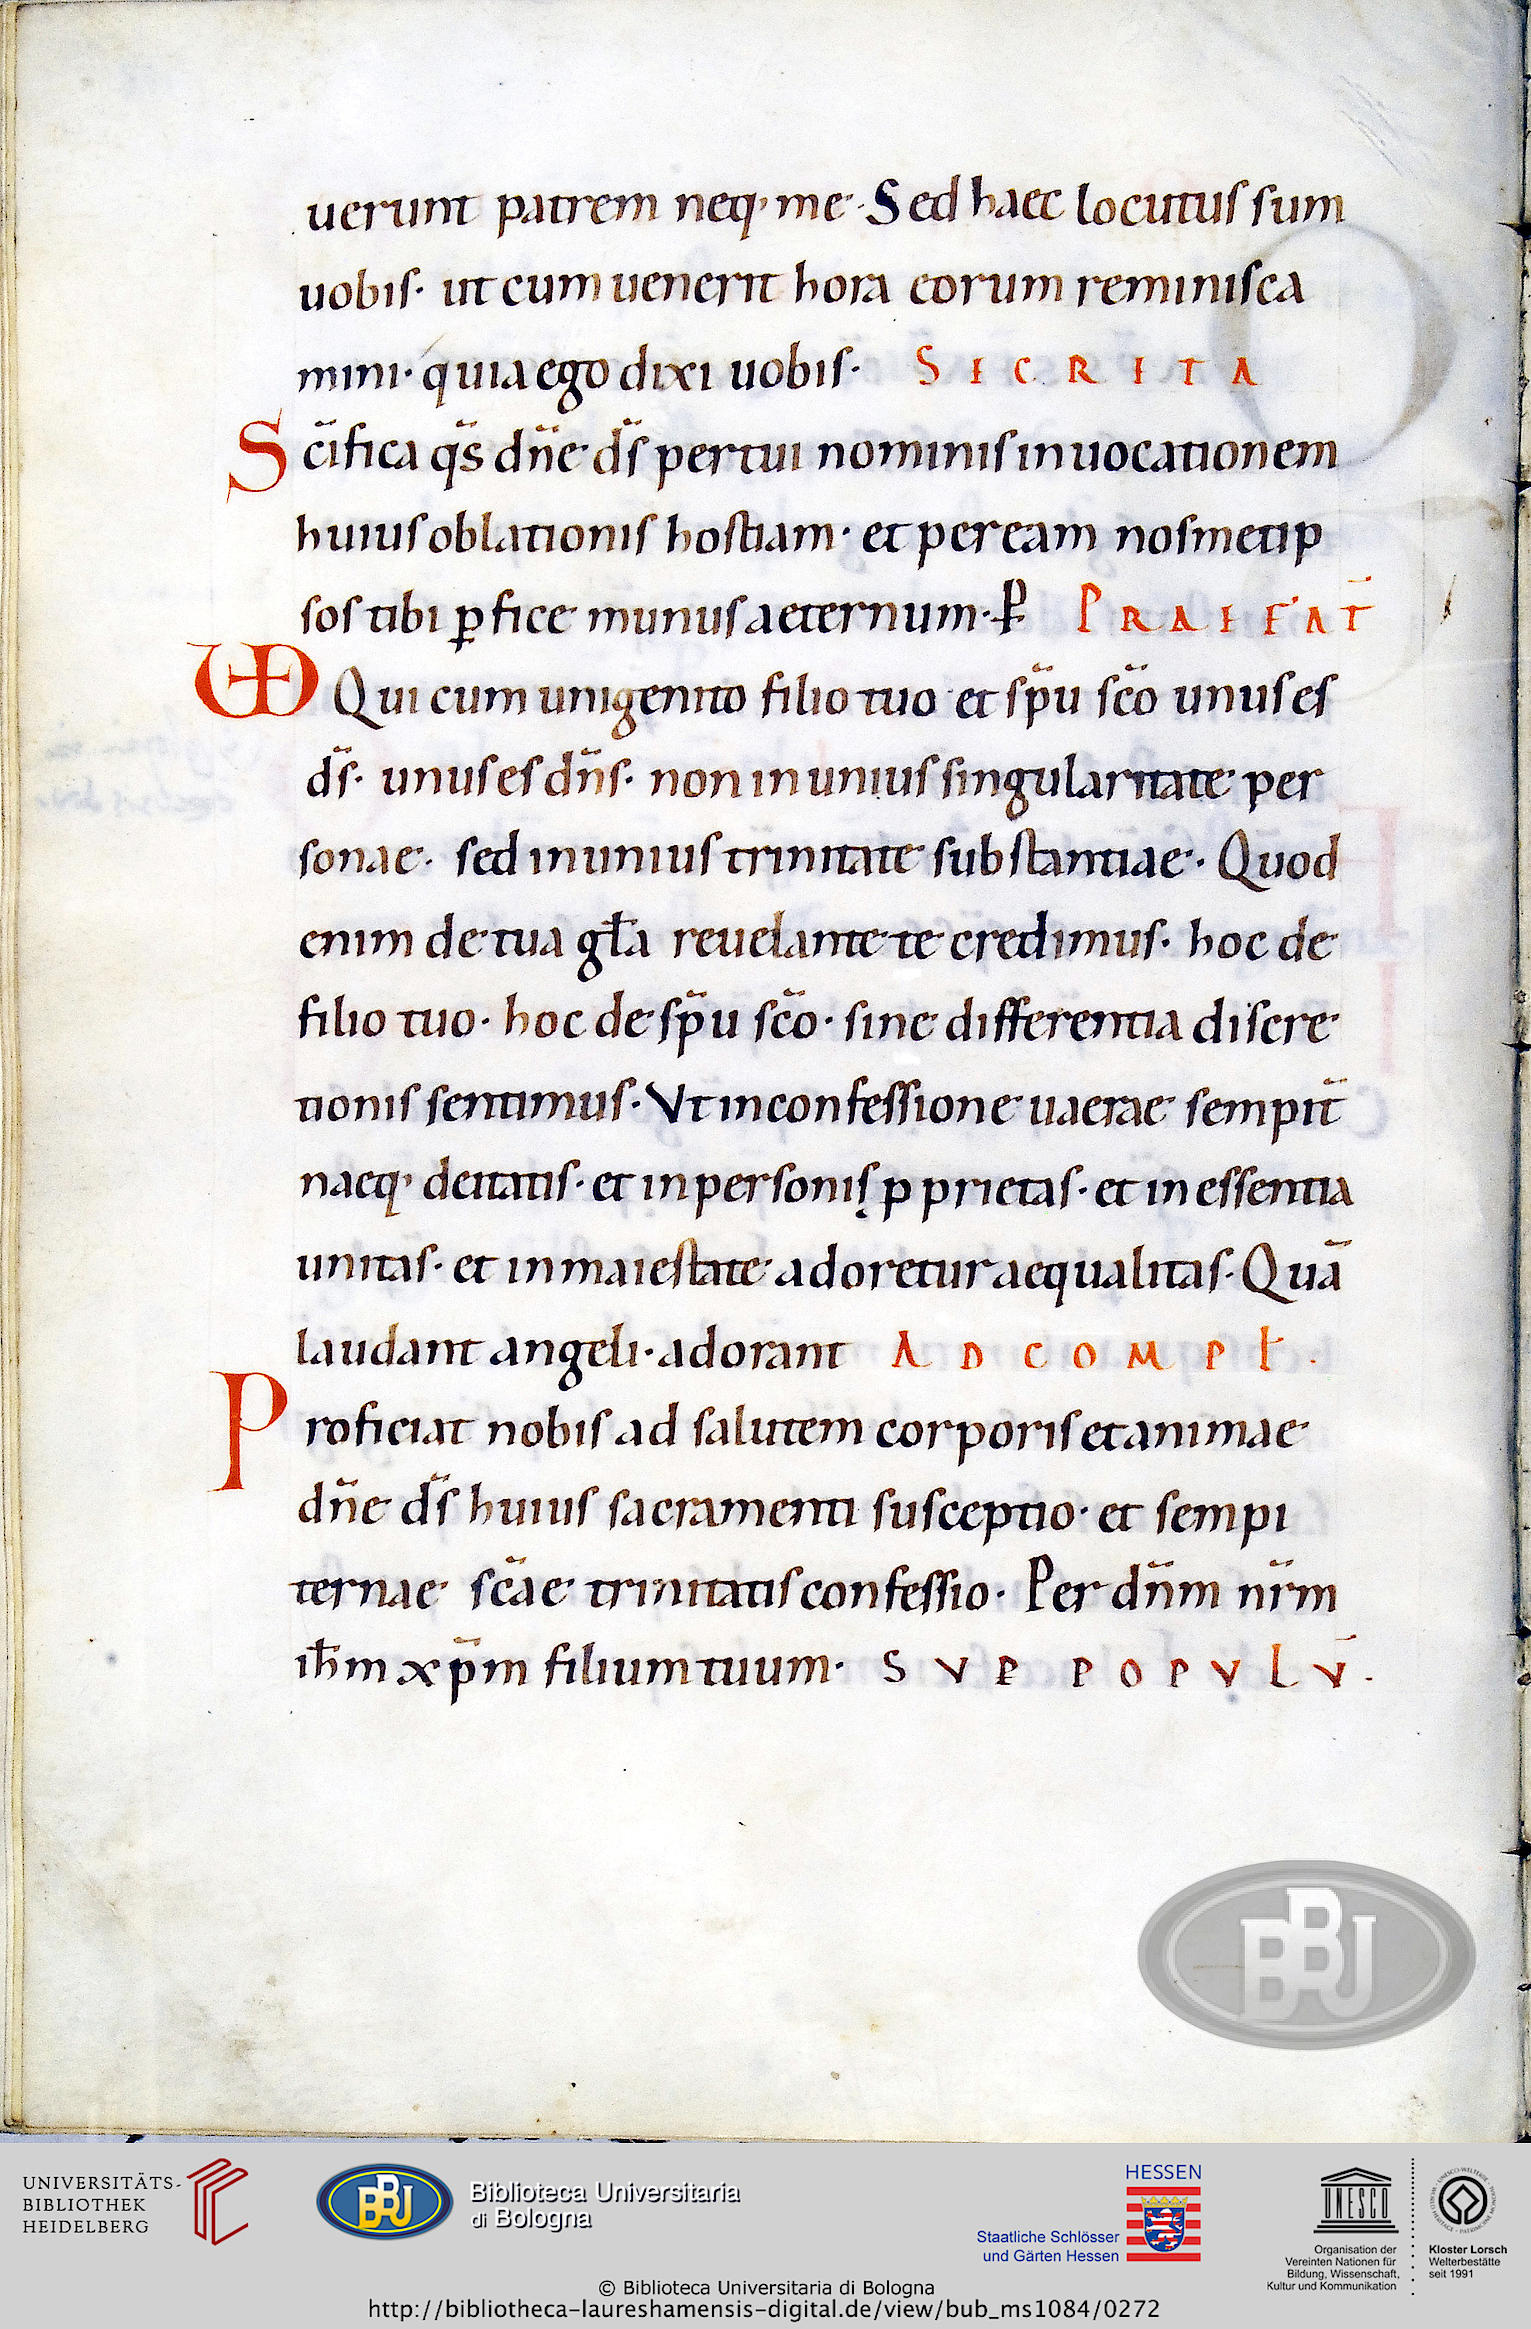 uerunt patrem neq· me· Sed haec locutus sum
uobis· ut cum uenerit hora eorum reminisca
mini· quia ego dixi uobis· SECRETA
Sc̄ifica qs̄ dn̄e ds̄ per tui nominis inuocationem
huius oblationis hostiam· et per eam nosmetip
sos tibi ꝑfice munus aeternum· P̶ PRAEFAT̄
VD Qui cum unigenito filio tuo et sp̄u sc̄o unus es
ds̄· unus es dn̄s· non in unius singularitate per
sonae· sed in unius trinitate substantiae· Quod
enim de tua gła reuelante te credimus· hoc de
filio tuo· hoc de sp̄u sc̄o· sine differentia discre
tionis sentimus· Vt in confessione uaerae sempit̄
naeq· deitatis· et in personis ꝓprietas· et in essentia
unitas· et in maiestate adoretur aequalitas· Quā
laudant angeli· adorant AD COMPŁ·
Proficiat nobis ad salutem corporis et animae
dn̄e ds̄ huius sacramenti susceptio· et sempi
ternae sc̄ae trinitatis confessio· Per dn̄m nr̄m
ih̄m xp̄m filium tuum· SUP POPULŪ·
BBJ
UNIVERSITÄTS-
BIBLIOTHEK
HEIDELBERG
BBJ
Biblioteca Universitaria
di Bologna
HESSEN
Staatliche Schlösser
und Gärten Hessen
UNESCO
Organisation der
Vereinten Nationen für
Bildung, Wissenschaft,
Kultur und Kommunikation
Kloster Lorsch
Welterbestätte
seit 1991
© Biblioteca Universitaria di Bologna
http://bibliotheca-laureshamensis-digital.de/view/bub_ms1084/0272